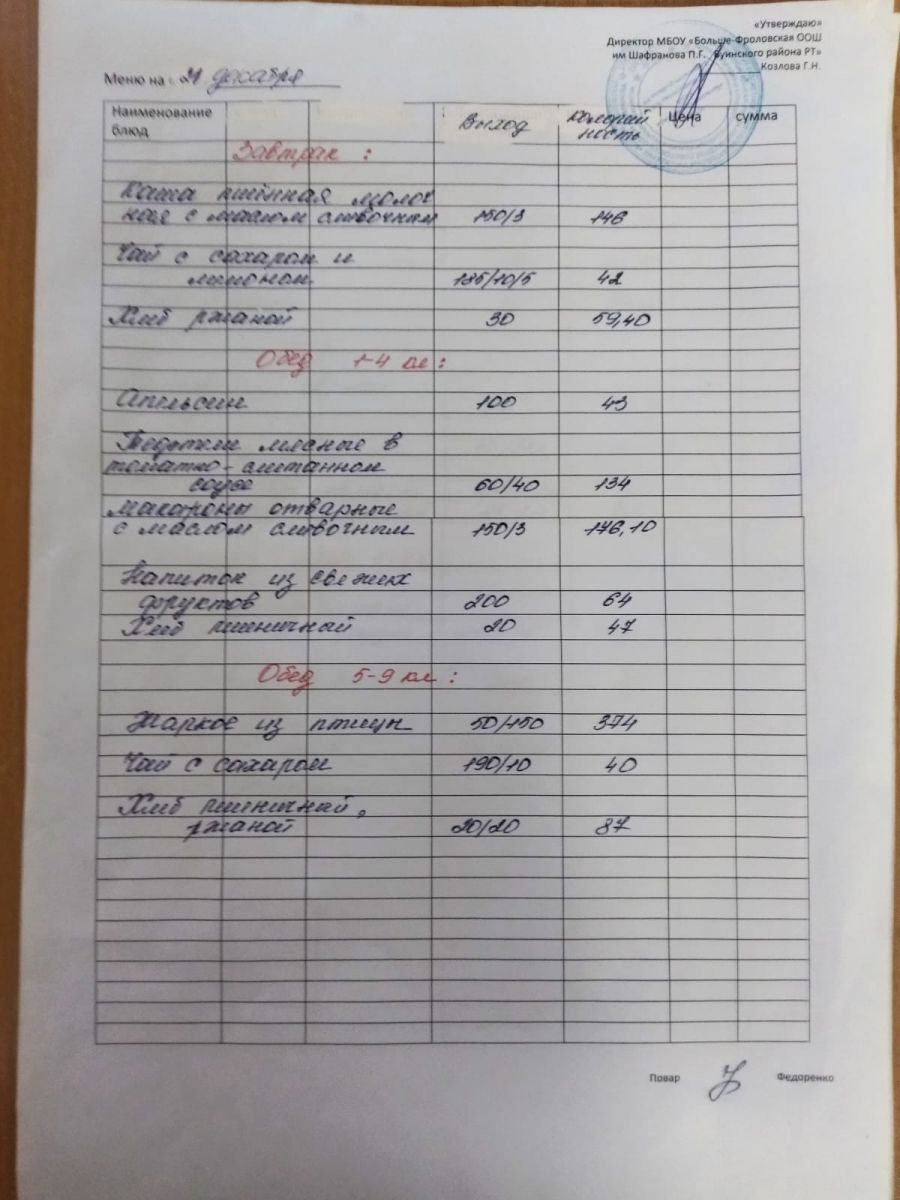 «Утверждаю»
Директор МБОУ «Больше-Фроловская ООШ
им Шафранова П.Г. Буинского района РТ»
Козлова Г.Н.
Меню на декабря
Наименование блюд Выход Калорий ность Цена сумма
Завтрак :
Каша пшённая молоч
ная с маслом сливочным 150/3 146
Чай с сахаром и
лимоном 185/10/5 42
Хлеб ржаной 30 59,40
Обед 1-4 кл :
Апельсин 100 43
Тефтели мясные в
томатно-сметанном
соусе 60/40 134
Макароны отварные
с маслом сливочным 150/3 176,10
Напиток из свежих
фруктов 200 64
Хлеб пшеничный 20 47
Обед 5-9 кл :
Жаркое из птицы 50/150 374
Чай с сахаром 190/10 40
Хлеб пшеничный,
ржаной 20/20 87
Повар Федоренко